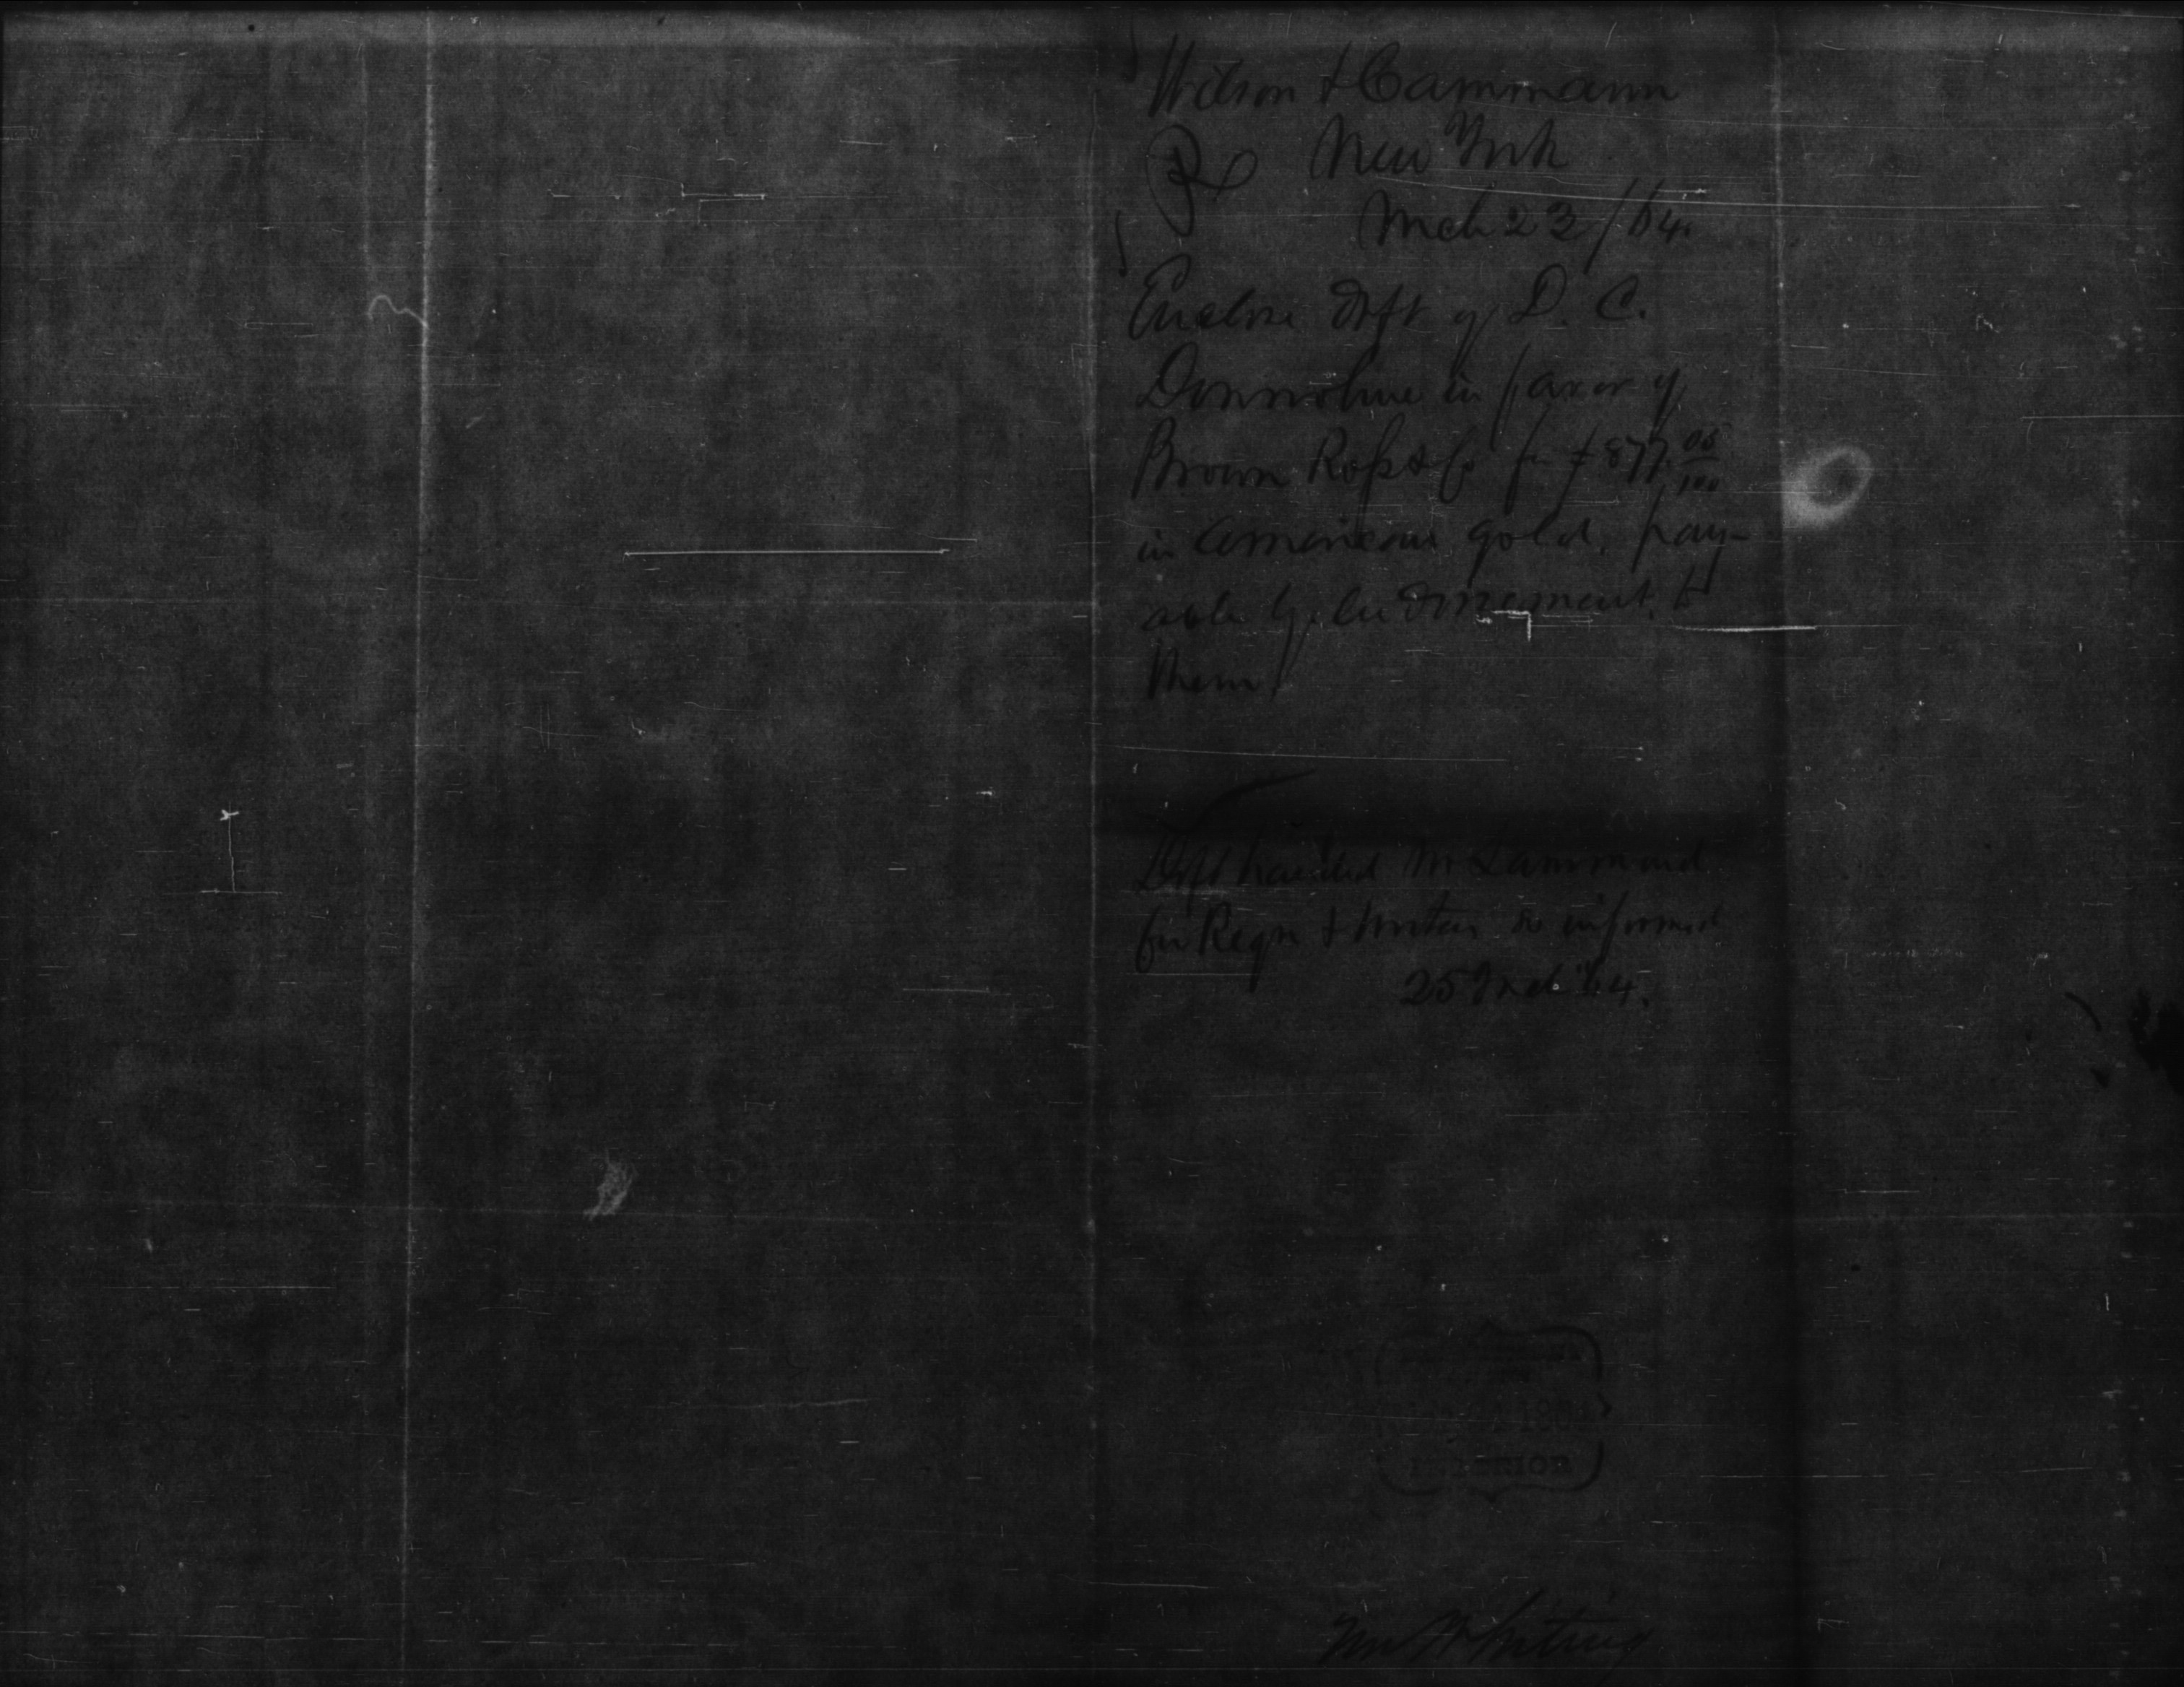 Wilson & Cammann
New York
Mch 23/64.
Enclose Dft of D. C.
Donnohue in favor of
Brown Ross & Co for $877. 05/100
in American gold, pay-
able by endorsement to
them
Dft handed Mr Lammond
for Reqn & writers so informed
25 Mch 64.
186
INTERIOR
Mr Whiting